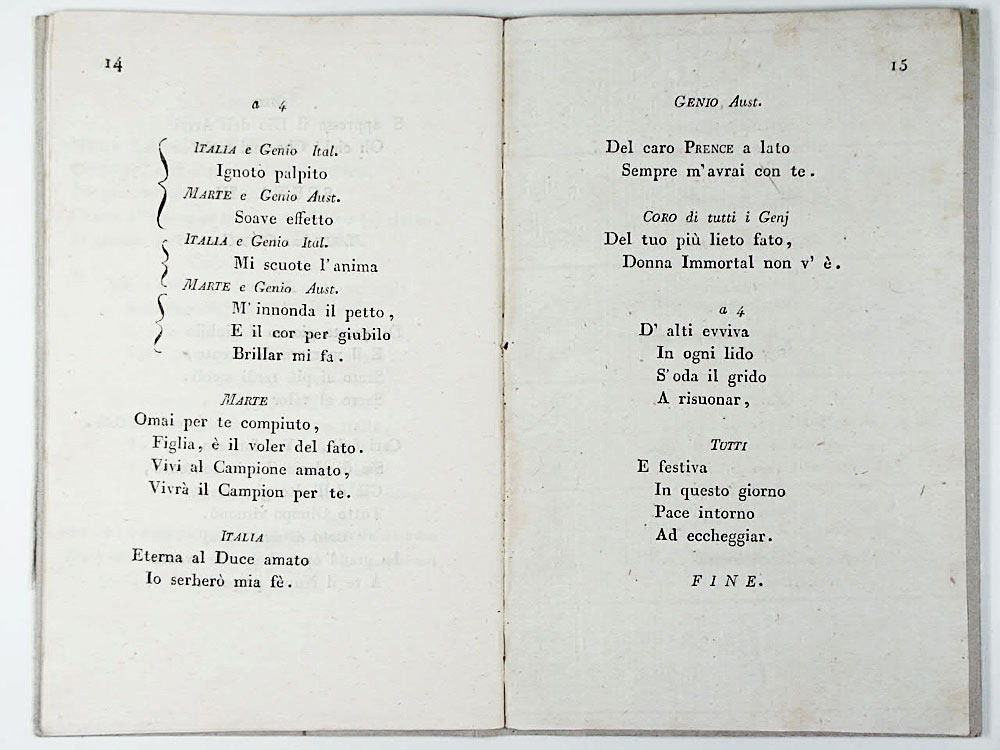 14
a 4
ITALIA e Genio Ital.
Ignoto palpito
MARTE e Genio Aust.
Soave effetto
ITALIA e Genio Ital.
Mi scuote l'anima
MARTE e Genio Aust.
M' innonda il petto,
E il cor per giubilo
Brillar mi fa.
MARTE
Omai per te compiuto,
Figlia, è il voler del fato.
Vivi al Campione amato,
Vivrà il Campion per te.
ITALIA
Eterna al Duce amato
Io serberò mia fè.
15
GENIO Aust.
Del caro PRENCE a lato
Sempre m'avrai con te.
CORO di tutti i Genj
Del tuo più lieto fato,
Donna Immortal non v' è.
a 4
D' alti evviva
In ogni lido
S'oda il grido
A risuonar,
TUTTI
E festiva
In questo giorno
Pace intorno
Ad eccheggiar.
FINE.